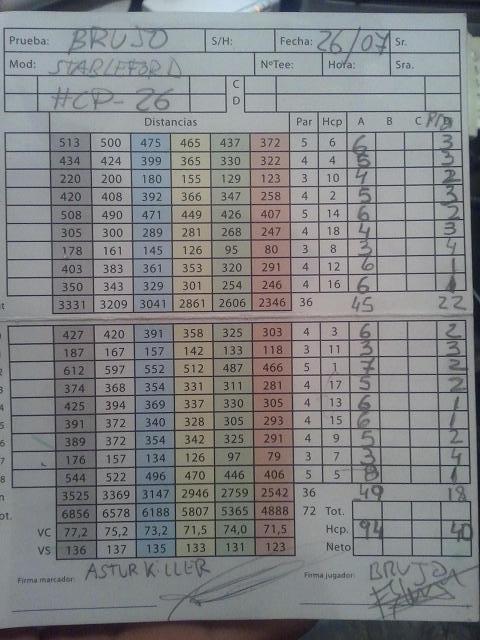 Prueba: BRUJO S/H: Fecha: 26/07 Sr.
Mod: NºTee: Hora: Sra.
#CP-26 C
D
Distancias Par Hcp A B C
513 500 475 465 437 372 5 6 6 3
434 424 399 365 330 322 4 4 5 3
220 200 180 155 129 123 3 10 4 2
420 408 392 366 347 258 4 2 5 3
508 490 471 449 426 407 5 14 6 2
305 300 289 281 268 247 4 18 4 3
178 161 145 126 95 80 3 8 3 4
403 383 361 353 320 291 4 12 6 1
350 343 329 301 254 246 4 16 6 1
3331 3209 3041 2861 2606 2346 36 45 22
427 420 391 358 325 303 4 3 6 2
187 167 157 142 133 118 3 11 3 3
612 597 552 512 487 466 5 1 7 2
374 368 354 331 311 281 4 17 5 2
425 394 369 337 330 305 4 13 6 1
391 372 340 328 305 293 4 15 6 1
389 372 354 342 325 291 4 9 5 2
176 157 134 126 97 79 3 7 3 4
544 522 496 470 446 406 5 5 8 1
3525 3369 3147 2946 2759 2542 36 49 18
6856 6578 6188 5807 5365 4888 72 Tot.
VC 77,2 75,2 73,2 71,5 74,0 71,5 Hcp. 94 40
VS 136 137 135 133 131 123 Neto
Firma marcador: ASTUR KILLER Firma jugador: BRUJO